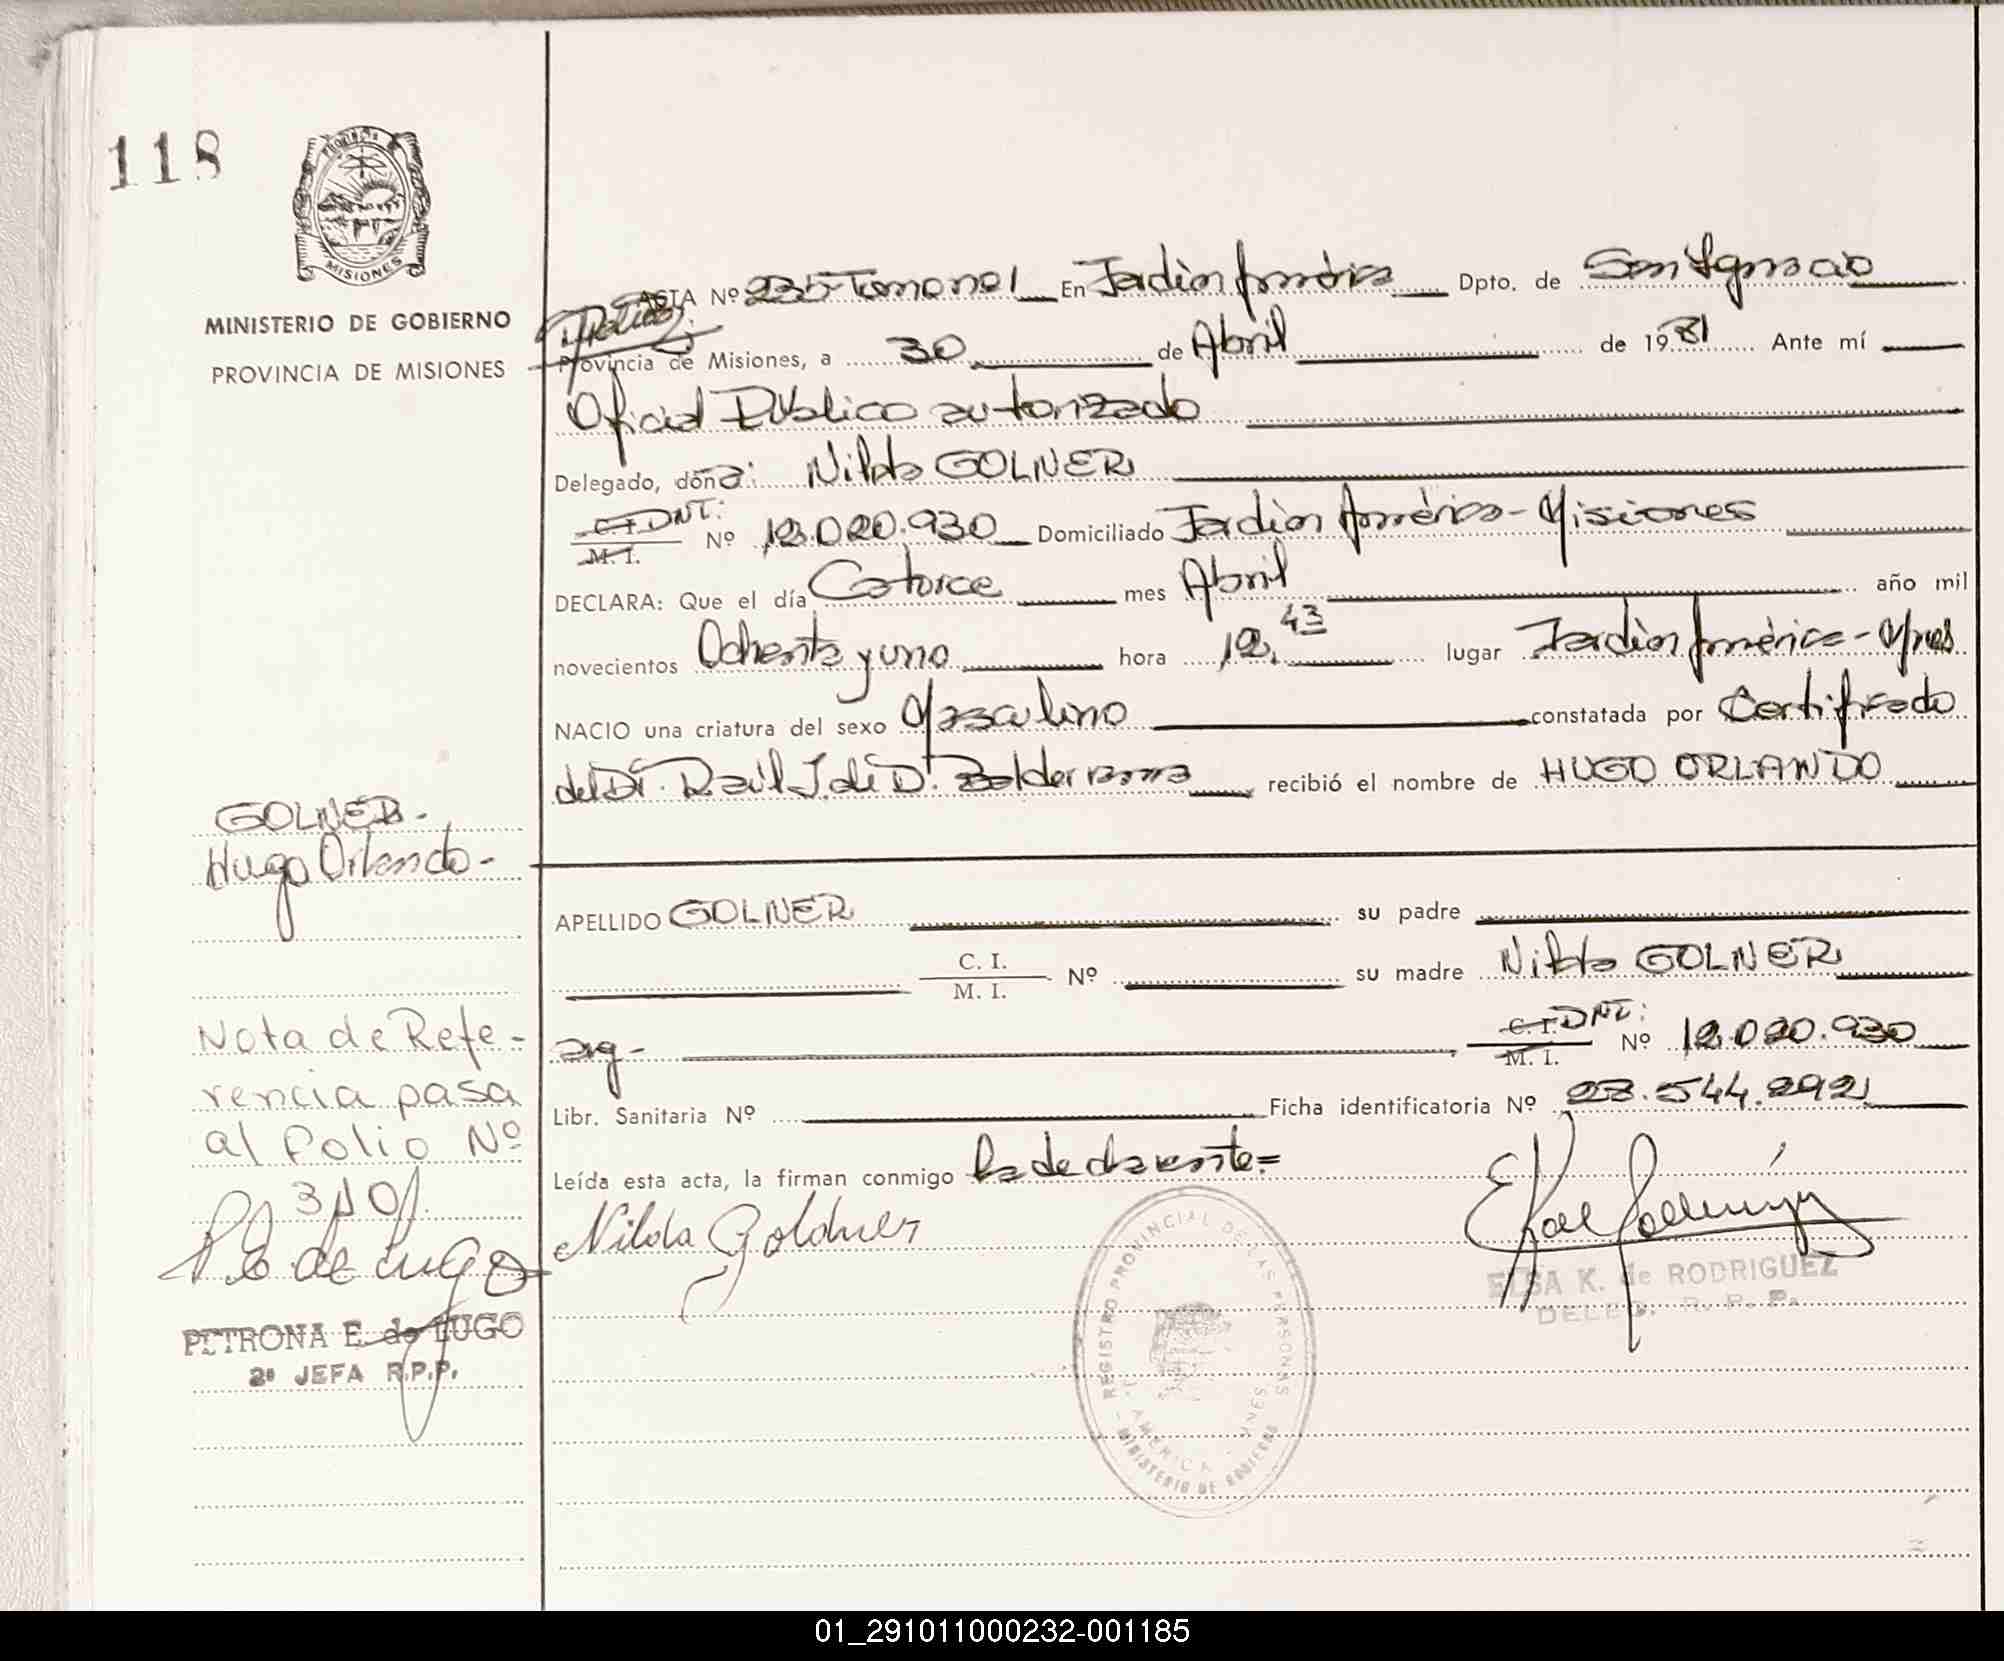 118
PROVINCIA
MISIONES
MINISTERIO DE GOBIERNO
PROVINCIA DE MISIONES
ACTA Nº 235-Tomo nº 1 En Jardín América Dpto. de San Ignacio
Provincia de Misiones, a 30 de Abril de 1981 Ante mí
Oficial Público autorizado
Delegado, doña: Nilda GOLNER
C.I. DNI:
M. I. Nº 12.020.930 Domiciliado Jardín América - Misiones
DECLARA: Que el día Catorce mes Abril año mil
novecientos Ochenta y uno hora 12,43 lugar Jardín América - Mnes
NACIO una criatura del sexo Masculino constatada por Certificado
del Dr. Raúl J. de D. Balderrama recibió el nombre de HUGO ORLANDO
GOLNER-
Hugo Orlando-
APELLIDO GOLNER su padre
C. I.
M. I. Nº su madre Nilda GOLNER
arg- C. I. DNI:
M. I. Nº 12.020.930
Libr. Sanitaria Nº Ficha identificatoria Nº 28.544.292
Leída esta acta, la firman conmigo la declarante=
Nilda Goldner
ELSA K. de RODRIGUEZ
DELEG. R. P. P.
REGISTRO PROVINCIAL DE LAS PERSONAS
AMERICA - MNES
- MINISTERIO DE GOBIERNO
Nota de Refe-
rencia pasa
al folio Nº
310/.
P. E. de Lugo
PETRONA E. de LUGO
2º JEFA R.P.P.
01_291011000232-001185